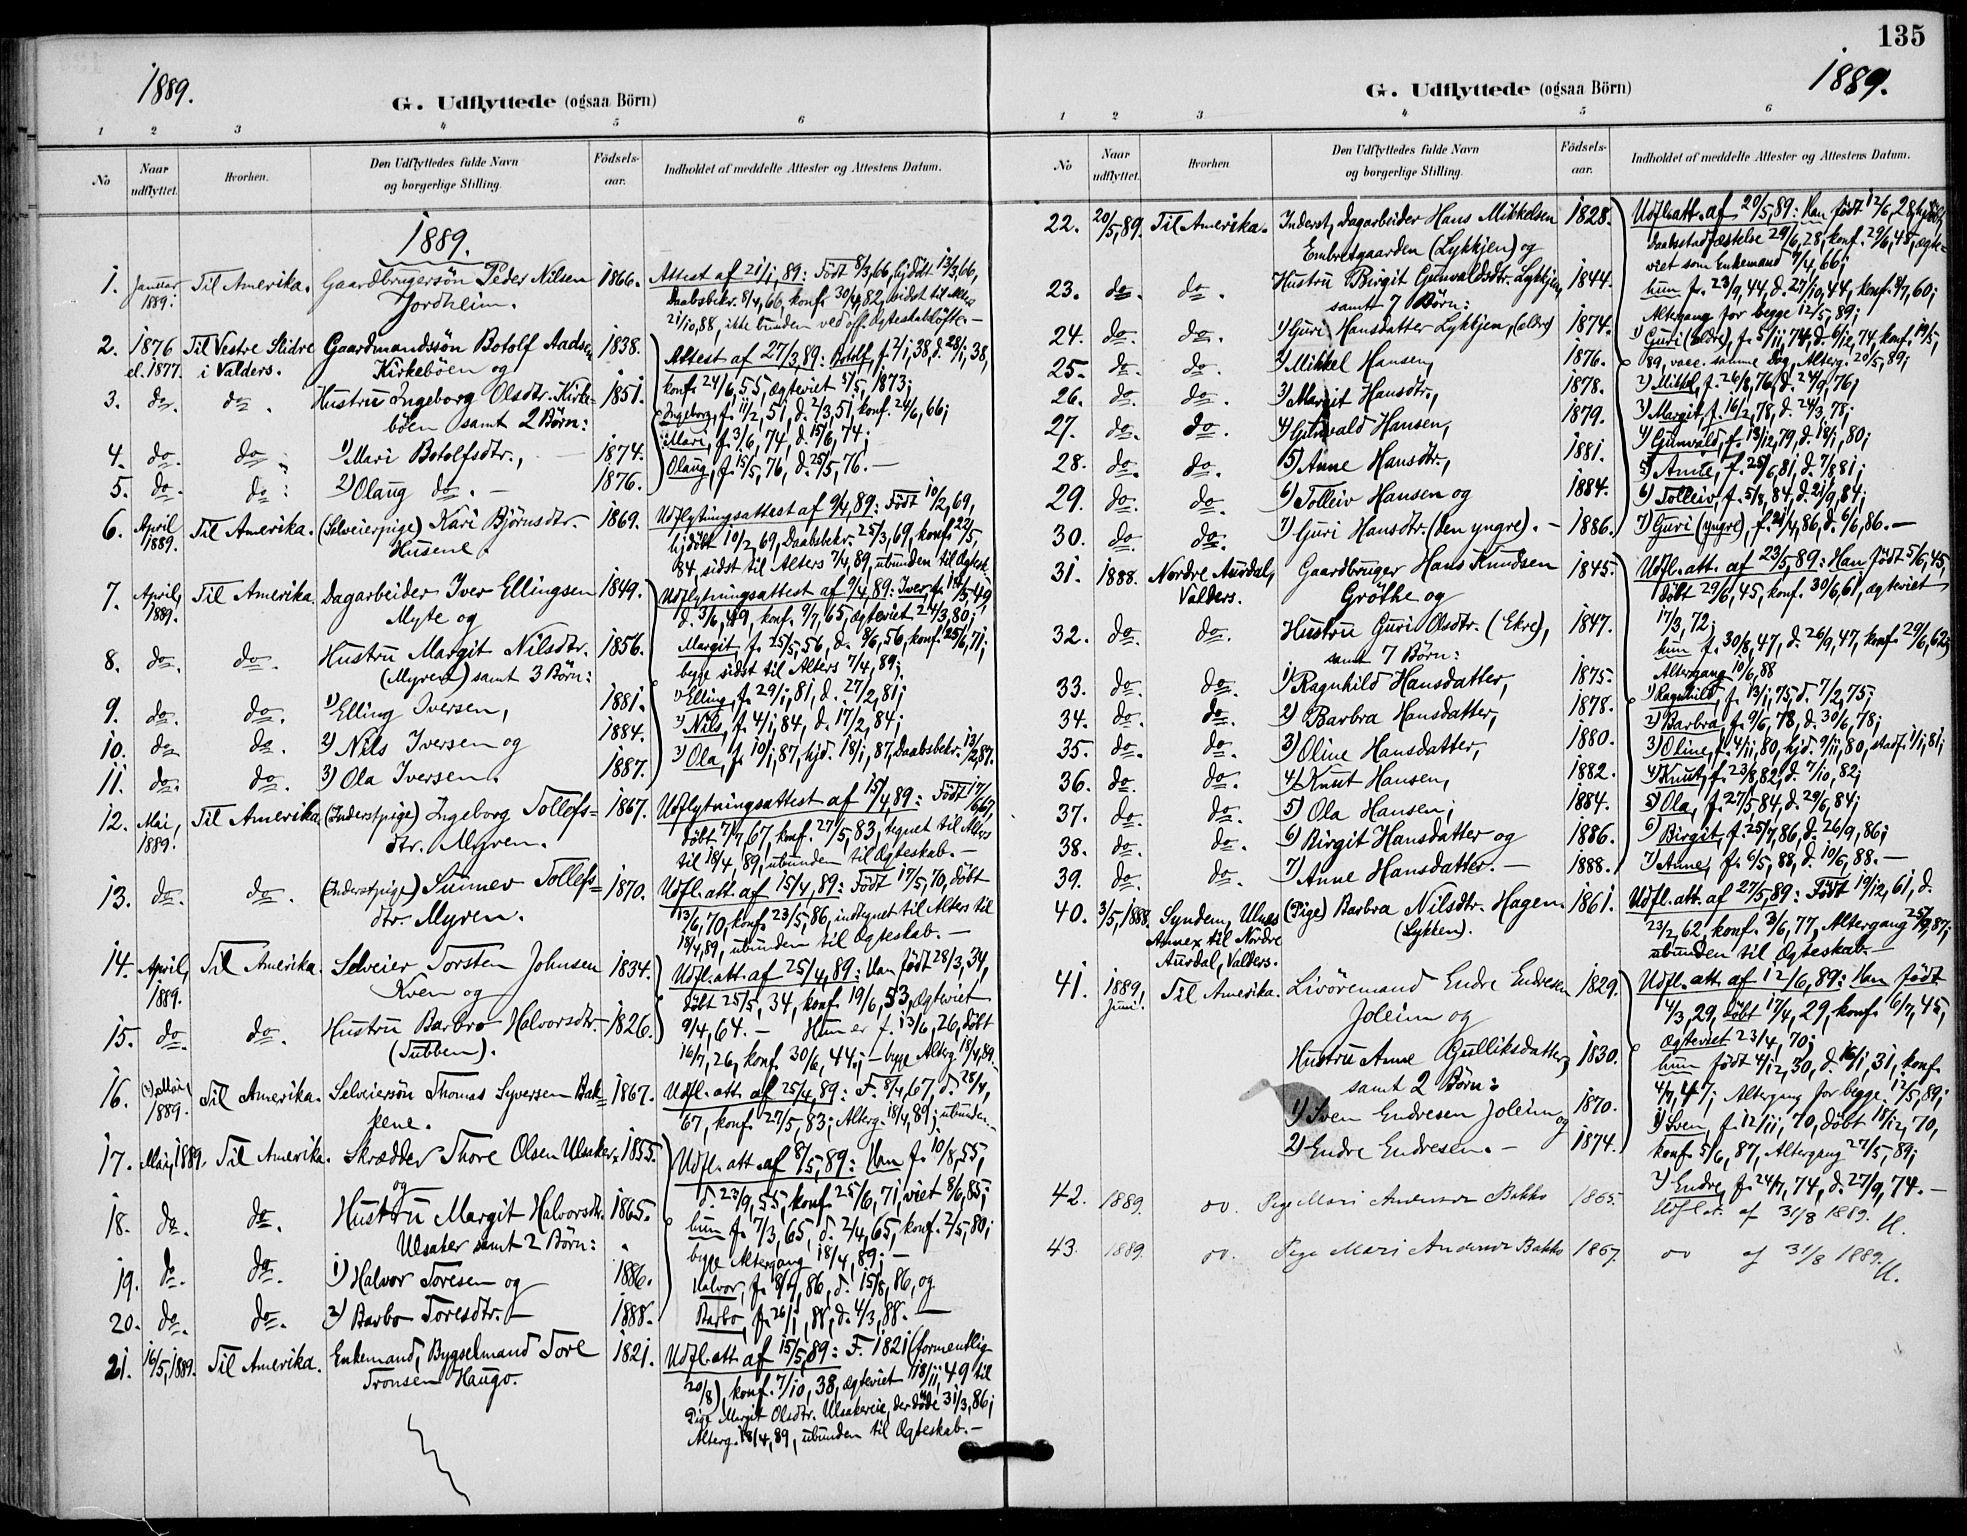 135
1889.
G. Udflyttede (ogsaa Börn)
1 2 3 4 5 6
No
Naar udflyttet.
Hvorhen.
Den Udflyttedes fulde Navn og borgerlige Stilling.
Födsels-aar.
Indholdet af meddelte Attester og Attestens Datum.
1889.
1. Januar 1889. Til Amerika. Gaardbrugersön Peder Nilsen 1866. Attest af 21/1, 89: Född 8/3, 66, hjdöbt 13/3, 66,
Jordheim. Daabsbekr. 8/4, 66, konf. 30/4, 82, sidst til Alters
21/10, 88, ikke bunden ved off. Ægteskabslöfte. —
2. 1876 el. 1877. Til Vestre Slidre i Valders. Gaardmandssön Botolf Aadsen 1838. Attest af 27/3, 89: Botolf, f. 2/1, 38, d. 28/1, 38,
Kirkeböen og konf. 24/6, 55, ægteviet 5/5, 1873;
3. do. do. Hustru Ingeborg Olsdtr. Kirke- 1851. Ingeborg, f. 11/2, 51, d. 2/3, 51, konf. 24/6, 66;
böen samt 2 Börn: Mari, f. 3/6, 74, d. 15/6, 74;
4. do. do. 1) Mari Botolfsdtr., 1874. Olaug, f. 15/5, 76, d. 25/5, 76. —
5. do. do. 2) Olaug do. — 1876.
6. April 1889. Til Amerika. (Selveierpige) Kari Björnsdtr. 1869. Udflytningsattest af 9/4, 89: Född 10/2, 69,
Husene. hjdöbt 10/2, 69, Daabsbekr. 25/3, 69, konf. 22/5,
84, sidst til Alters 7/4, 89, ubunden til Ægtesk.
7. April, 1889. Til Amerika. Dagarbeider Iver Ellingsen 1849. Udflytningsattest af 9/4, 89: Iver, f. 14/5, 49,
Myte og d. 3/6, 49, konf. 9/7, 65, ægteviet 24/3, 80;
8. do. do. Hustru Margit Nilsdtr. 1856. Margit, f. 25/5, 56, d. 8/6, 56, konf. 25/6, 71;
(Myren) samt 3 Börn: begge sidst til Alters 7/4, 89;
9. do. do. 1) Elling Iversen, 1881. 1) Elling, f. 29/1, 81, d. 27/2, 81;
10. do. do. 2) Nils Iversen og 1884. 2) Nils, f. 4/1, 84, d. 17/2, 84;
11. do. do. 3) Ola Iversen. 1887. 3) Ola, f. 10/1, 87, hjd. 18/1, 87, Daabsbekr. 13/2, 87.
12. Mai, 1889. Til Amerika. (Inderstpige) Ingeborg Tollefs= 1867. Udflytningsattest af 15/4 89: Född 17/6, 67,
dtr. Myren. döbt 7/7, 67, konf. 27/5, 83, tegnet til Alters
til 18/4, 89, ubunden til Ægteskab. —
13. do. do. (Inderstpige) Sünnev Tollefs= 1870. Udfl. att. af 15/4, 89: Född 17/5, 70, döbt
dtr. Myren. 13/6, 70, konf. 23/5, 86, indtegnet til Alters til
18/4, 89, ubunden til Ægteskab. —
14. April, 1889. Til Amerika. Selveier Torsten Johnsen 1834. Udfl. att. af 25/4, 89: Han födt 28/3, 34,
Kven og döbt 25/5, 34, konf. 19/6, 53, Ægteviet
15. do. do. Hustru Barbro Halvorsdtr. 1826. 9/4, 64. — Hun er f. 13/6, 26, döbt
(Tubben). 16/7, 26, konf. 30/6, 44; — begge Alterg. 18/4, 89.
16. Mai, 1889. Til Amerika. Selveiersön Thomas Syversen Bak= 1867. Udfl. att. af 25/4, 89: F. 8/4, 67, d. 28/4,
kene. 67, konf. 27/5, 83; Alterg. 18/4, 89; ubunden.
17. Mai, 1889. Til Amerika. Skrædder Thore Olsen Ulsaker 1855. Udfl. att. af 8/5, 89: Han f. 10/8, 55,
og d. 23/9, 55, konf. 25/6, 71, viet 8/6, 85;
18. do. do. Hustru Margit Halvorsdtr. 1865. hun f. 7/3, 65, d. 2/4, 65, konf. 2/5, 80;
Ulsaker samt 2 Börn: begge Altergang 18/4, 89; —
19. do. do. 1) Halvor Toresen og 1886. Halvor, f. 8/7, 86, d. 15/8, 86, og
20. do. do. 2) Barbo Toresdtr. — 1888. Barbo, f. 26/1, 88, d. 4/3, 88. —
21. 16/5, 1889. Til Amerika. Enkemand, Bygselmand Tore 1821. Udfl. att. af 15/5, 89: F. 1821 (formentlig
Tronsen Haugo. 20/8), konf. 7/10, 38, ægteviet 18/11, 49 til
Pige Margit Olsdtr. Ulsakereie, der döde 31/3, 86;
Alterg. 18/4, 89, ubunden til Ægteskab. —
1889.
G. Udflyttede (ogsaa Börn)
1 2 3 4 5 6
No
Naar udflyttet.
Hvorhen.
Den Udflyttedes fulde Navn og borgerlige Stilling.
Födsels-aar.
Indholdet af meddelte Attester og Attestens Datum.
22. 20/5, 89. Til Amerika. Inderst, Dagarbeider Hans Mikkelsen 1828. Udfl. att. af 20/5, 89: Han født 12/6, 28, hjdöbt,
Embretgaarden (Lykkjen) og Daabsstadfæstelse 29/6, 28, konf. 29/6, 45, ægte-
viet som Enkemand 9/4, 66;
23. do. do. Hustru Birgit Gunvaldsdtr. Lykkjen 1844. hun f. 23/9, 44, d. 27/10, 44, konf. 8/7, 60;
samt 7 Börn: Altergang for begge 12/5, 89;
24. do. do. 1) Guri Hansdatter Lykkjen, (ældre) 1874. 1) Guri (ældre), f. 5/11, 74, d. 6/12, 74, konf. 19/5,
89, vacc. samme Dag, Alterg. 20/5, 89;
25. do. do. 2) Mikkel Hansen, 1876. 2) Mikkel, f. 26/8, 76, d. 24/9, 76;
26. do. do. 3) Margit Hansdtr., 1878. 3) Margit, f. 16/2, 78, d. 24/3, 78;
27. do. do. 4) Gunvald Hansen, 1879. 4) Gunvald, f. 13/12, 79, d. 18/1, 80;
28. do. do. 5) Anne Hansdtr., 1881. 5) Anne, f. 25/6, 81, d. 7/8 81;
29. do. do. 6) Tolleiv Hansen og 1884. 6) Tolleiv, f. 5/8, 84, d. 21/9, 84;
30. do. do. 7) Guri Hansdtr. (den yngre). — 1886. 7) Guri (yngre), f. 21/4, 86, d. 6/6, 86. —
31. 1888. Nordre Aurdal, Valders. Gaardbruger Hans Knudsen 1845. Udfl. att. af 23/5, 89: Han födt 5/6, 45,
Gröthe og döbt 29/6, 45, konf. 30/6, 61, ægteviet
17/3, 72;
32. do. do. Hustru Guri Olsdtr. (Ekre), 1847. hun f. 30/8, 47, d. 26/9, 47, konf. 29/6, 62;
samt 7 Börn: Altergang 10/6, 88
33. do. do. 1) Ragnhild Hansdatter, 1875. 1) Ragnhild, f. 13/1, 75, d. 7/2, 75;
34. do. do. 2) Barbra Hansdatter, 1878. 2) Barbra, f. 9/6, 78, d. 30/6, 78;
35. do. do. 3) Oline Hansdatter, 1880. 3) Oline, f. 4/11, 80, hjd. 9/11, 80, stadf. 1/1, 81;
36. do. do. 4) Knut Hansen, 1882. 4) Knut, f. 23/8, 82, d. 7/10, 82;
37. do. do. 5) Ola Hansen; 1884. 5) Ola, f. 27/5 84, d. 29/6, 84;
38. do. do. 6) Birgit Hansdatter og 1886. 6) Birgit, f. 25/7, 86, d. 26/9, 86;
39. do. do. 7) Anne Hansdatter. — 1888. 7) Anne, f. 6/5, 88, d. 10/6, 88. —
40. 3/5, 1888. Syndem, Ulnes Annex til Nordre Aurdal, Valders. (Pige) Barbra Nilsdtr. Hagen 1861. Udfl. att. af 27/5, 89: Född 19/12, 61, d.
(Lykken). 23/2, 62, konf. 3/6, 77, Altergang 25/9, 87;
ubunden til Ægteskab. —
41. 1889, Juni. Til Amerika. Livöremand Endre Endresen 1829. Udfl. att. af 12/6, 89: Han födt
Joleim og 14/3, 29, döbt 17/4, 29, konf. 6/7, 45,
Ægteviet 23/4, 70;
Hustru Anne Gulliksdatter, 1830. hun födt 4/12, 30, d. 16/1, 31, konf.
samt 2 Börn: 4/7, 47; Altergang for begge 12/5, 89;
1) Sven Endresen Joleim og 1870. 1) Sven, f. 12/11, 70, döbt 18/12, 70,
konf. 5/6, 87, Altergang 27/5, 89;
2) Endre Endresen. — 1874. 2) Endre, f. 24/7, 74, d. 27/9, 74. —
42. 1889. do. Pige Mari Andersdr Bakke 1865. Udfl. a. af 31/8 1889. U.
43. 1889. do. Pige Mari Andersdr Bakke 1867. do af 31/8 1889. U.